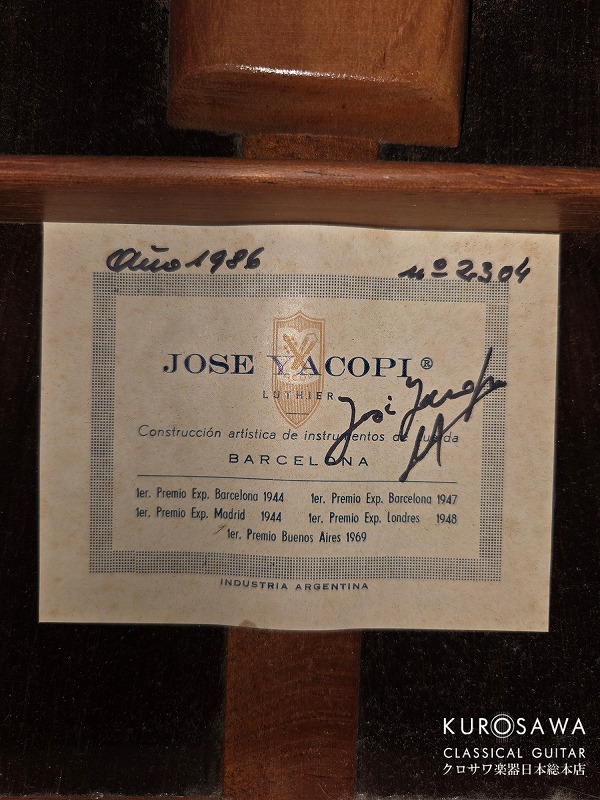 Año 1986 nº 2304
JOSE YACOPI®
LUTHIER
José Yacopi
Construcción artística de instrumentos de cuerda
BARCELONA
1er. Premio Exp. Barcelona 1944 1er. Premio Exp. Barcelona 1947
1er. Premio Exp. Madrid 1944 1er. Premio Exp. Londres 1948
1er. Premio Buenos Aires 1969
INDUSTRIA ARGENTINA
KUROSAWA
CLASSICAL GUITAR
クロサワ楽器日本総本店